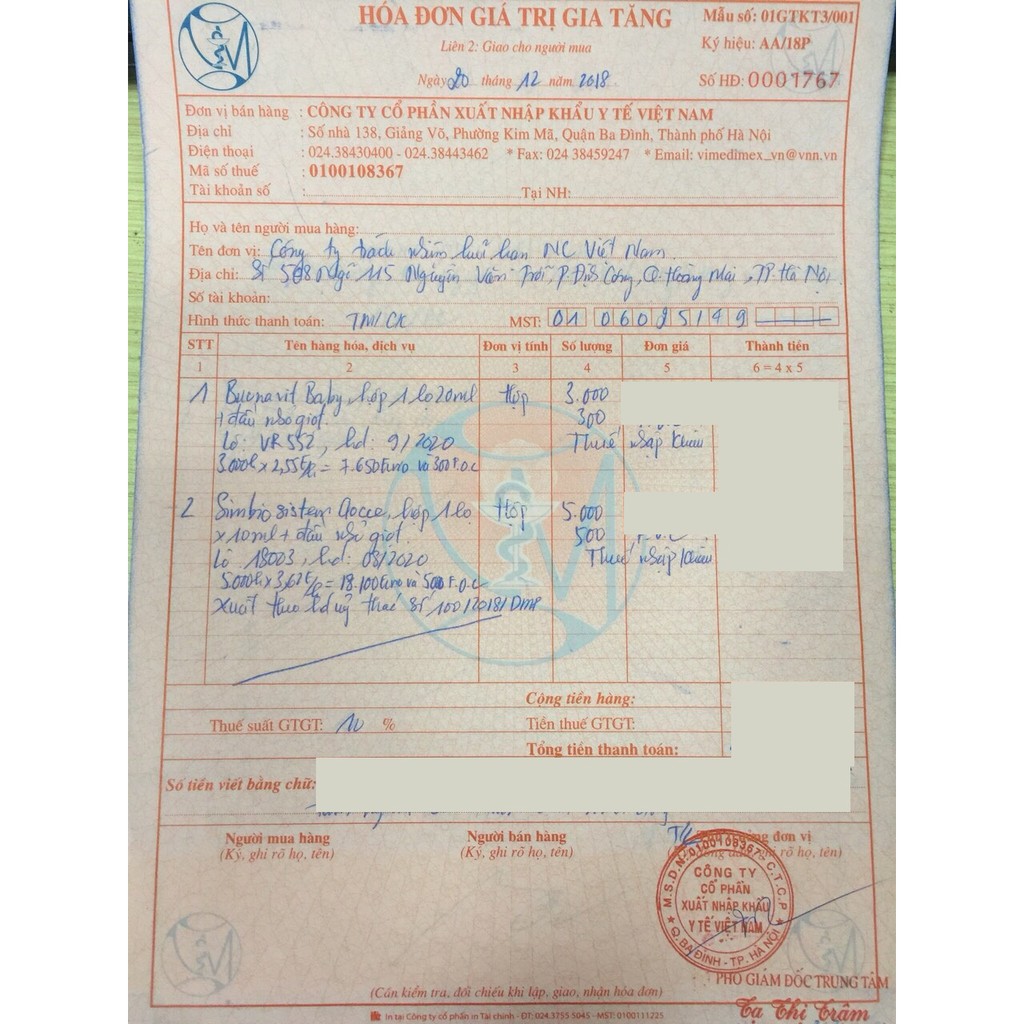 HÓA ĐƠN GIÁ TRỊ GIA TĂNG
Mẫu số: 01GTKT3/001
Liên 2: Giao cho người mua
Ký hiệu: AA/18P
Ngày 20 tháng 12 năm 2018
Số HĐ: 0001767
Đơn vị bán hàng : CÔNG TY CỔ PHẦN XUẤT NHẬP KHẨU Y TẾ VIỆT NAM
Địa chỉ : Số nhà 138, Giảng Võ, Phường Kim Mã, Quận Ba Đình, Thành phố Hà Nội
Điện thoại : 024.38430400 - 024.38443462 * Fax: 024 38459247 * Email: vimedimex_vn@vnn.vn
Mã số thuế : 0100108367
Tài khoản số : Tại NH:
Họ và tên người mua hàng:
Tên đơn vị: Công ty trách nhiệm hữu hạn NC Việt Nam
Địa chỉ: Số 5 Ngõ 115 Nguyễn Văn Trỗi, P. Định Công, Q. Hoàng Mai, TP Hà Nội
Số tài khoản:
Hình thức thanh toán: TM/CK MST: 01 06025149
STT Tên hàng hóa, dịch vụ Đơn vị tính Số lượng Đơn giá Thành tiền
1 2 3 4 5 6 = 4 x 5
1 Buonavit Baby, hộp 1 lọ 20ml Hộp 3.000
+ đầu nhỏ giọt. 300
Lô: VR552, hd: 9/2020 Thuế nhập khẩu
3.000h x 2,55 = 7.650 Euro và 300 F.O.C
2 Simbiosistem Gocce, hộp 1 lọ Hộp 5.000
x 10ml + đầu nhỏ giọt. 500
Lô 18003, hd: 08/2020 Thuế nhập khẩu
5.000h x 3,62 = 18.100 Euro và 500 F.O.C
Xuất theo hđ uỷ thác số 100/2018/DMP
Cộng tiền hàng:
Thuế suất GTGT: 10 % Tiền thuế GTGT:
Tổng tiền thanh toán:
Số tiền viết bằng chữ:
Người mua hàng Người bán hàng đơn vị
(Ký, ghi rõ họ, tên) (Ký, ghi rõ họ, tên) rõ họ, tên)
M.S.D.N:0100108367-C.T.C.P
CÔNG TY
CỔ PHẦN
XUẤT NHẬP KHẨU
Y TẾ VIỆT NAM
Q. BA ĐÌNH - TP. HÀ NỘI
PHÓ GIÁM ĐỐC TRUNG TÂM
Tạ Thị Trâm
(Cần kiểm tra, đối chiếu khi lập, giao, nhận hóa đơn)
In tại Công ty cổ phần in Tài chính - ĐT: 024.3755 5045 - MST: 0100111225